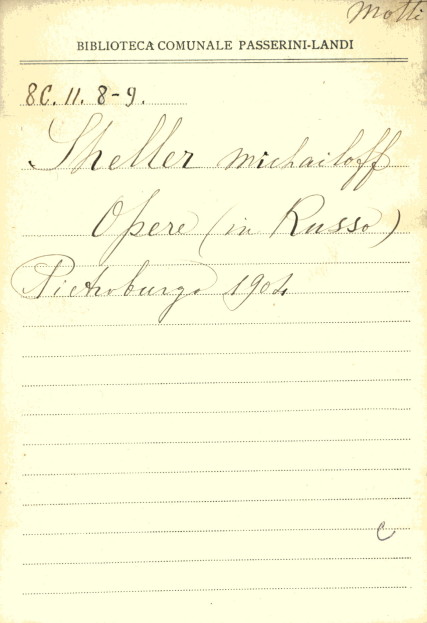 Motti
BIBLIOTECA COMUNALE PASSERINI-LANDI
8C. 11. 8-9.
Sheller Michailoff
Opere (in Russo)
Pietroburgo 1904
C